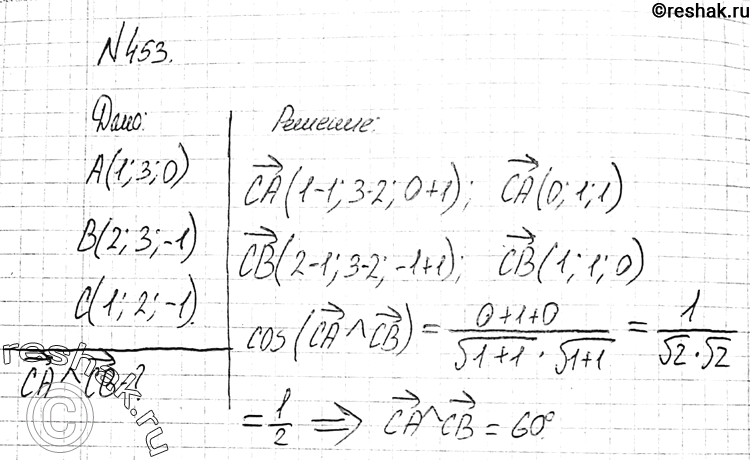 ©reshak.ru
№453.
Дано:
A(1; 3; 0)
B(2; 3; -1)
C(1; 2; -1).
CA^CB-?
Решение:
CA(1-1; 3-2; 0+1); CA(0; 1; 1)
CB(2-1; 3-2; -1+1); CB(1; 1; 0)
cos(CA^CB) = (0+1+0)/(√(1+1)·√(1+1)) = 1/(√2·√2)
= 1/2 ⟹ CA^CB = 60°
reshak.ru
©